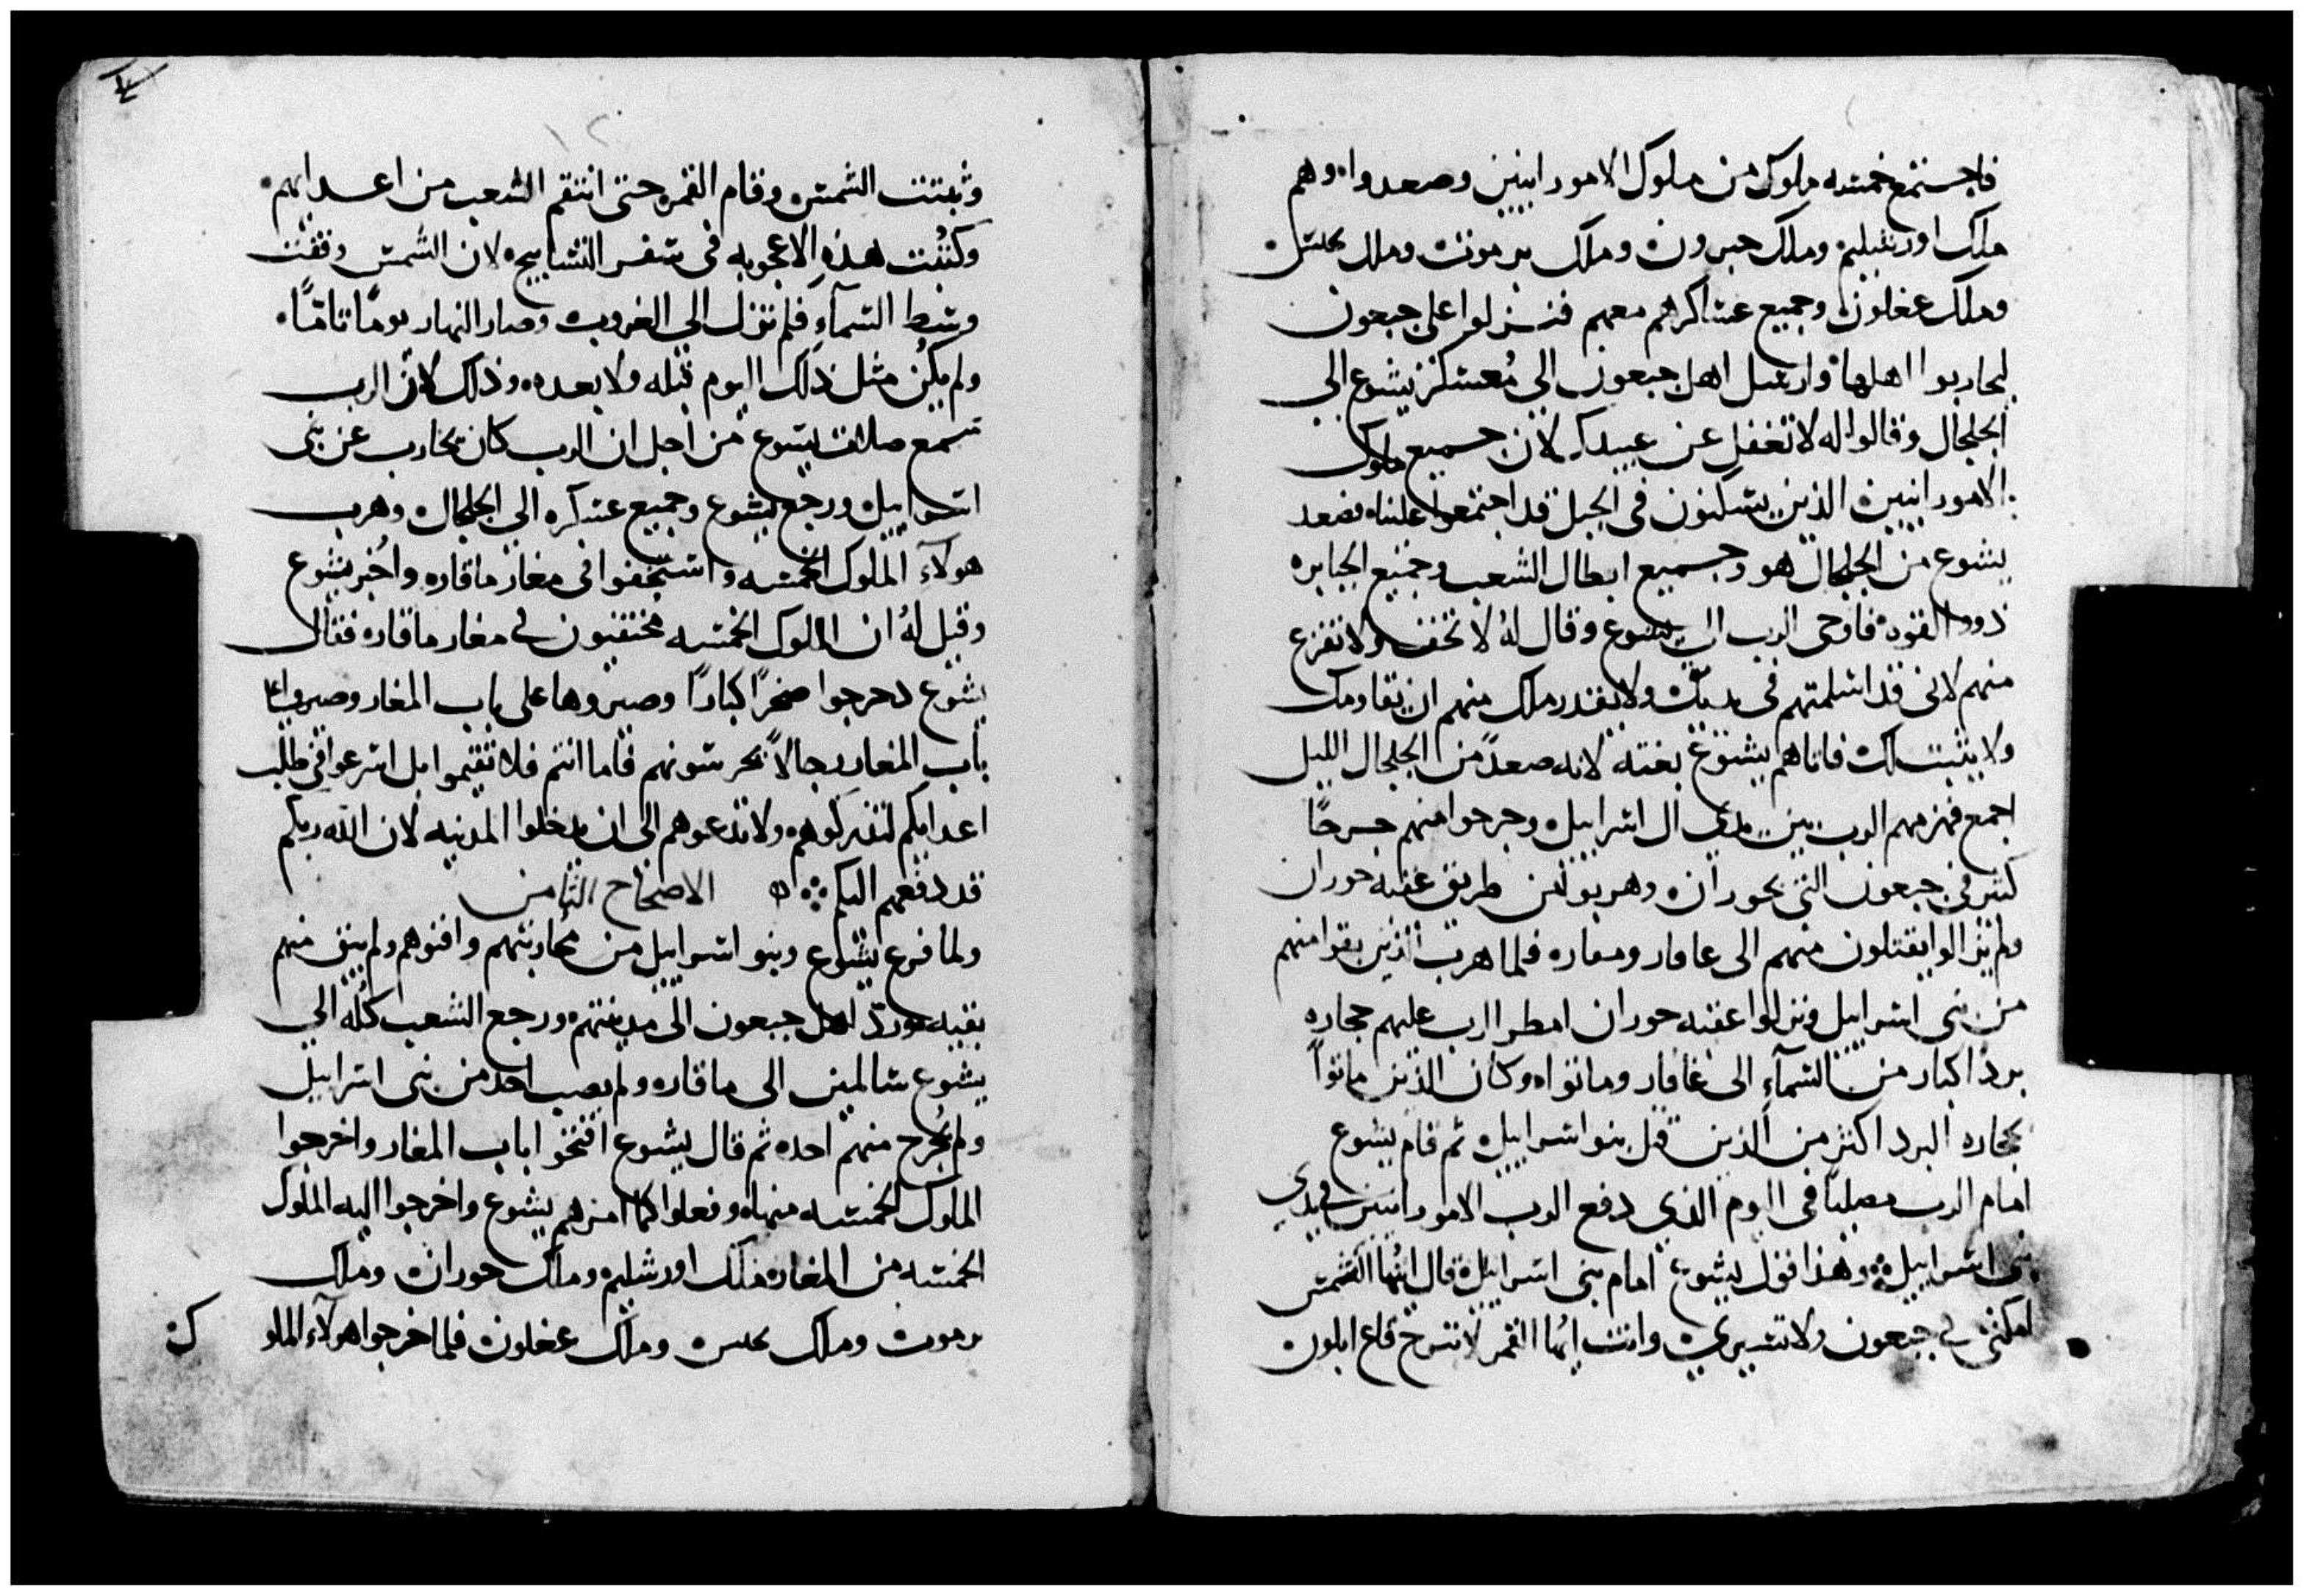 فاجتمع خمسه ملوك من ملوك الاموراينين وصعدوا. وهم
ملك اورشليم وملك حبرون وملك يرموث وملك
وملك عغلون وجميع عساكرهم معهم فنزلوا على جبعون
ليحاربوا اهلها وارسل اهل جبعون الى مُعسكر يشوع الى
الجلجال وقالوا له لا تغفل عن عبيدك لان جميع ملوك
الاموراينين الذين يسكنون في الجبل قد اجتمعوا علينا. فصعد
يشوع من الجلجال هو وجميع ابطال الشعب وجميع الجبابره
ذووا القوه فاوحى الرب الى يشوع وقال لهُ لا تخف ولا تفزع
منهم لاني قد اسلمتهم في يديك ولا يقدر ملك منهم ان يقاومك
ولا يثبت لك فاتاهم يشوع بغتة لانه صعد من الجلجال الليل
اجمع فهزمهم الرب بين يدي ال اسراييل وجرحوا منهم جرحًا
كثير في جبعون التي بحوران وهربوا في طريق عقبه حوران
ولم يزالوا يقتلون منهم الى عافار ومقاره فلما هرب الذين بقوا منهم
من بني اسراييل ونزلوا عقبه حوران امطر الرب عليهم حجاره
بردًا كبار من السمآءِ الى غافار وماتوا. وكان الذين ماتوا
بحجاره البرد اكثر من الذين قتل بنو اسراييل ثم قام يشوع
امام الرب مصليًا في اليوم الذي دفع الرب الاموراينين في يدي
بني اسراييل وهذا قول يشوع امام بني اسراييل قال ايتها الشمس
امكثي في جبعون ولا تسيري وانت ايُها القمر لا تبرح قاع ايلون
١٢
وثبتت الشمس وقام القمر حتى انتقم الشعب من اعدايهم
وكتُبت هذهِ الاعجوبه في سفر التسابيح لان الشمس وقفت
وسط السمآءِ فلم تنزل الى الغروب وصار النهار يومًا تامًا
ولم يكُن مثل ذلك اليوم قبله ولا بعده. وذلك لانّ الرب
سمع صلاة يشوع من اجل ان الرب كان يحارب عن بني
اسراييل ورجع يشوع وجميع عسكره الى الجلجال وهرب
هولآءِ الملوك الخمسه واستخفوا في مغار ماقاره واُخبر يشوع
وقيل لهُ ان الملوك الخمسه مختفيون في مغار ماقاره فقال
يشوع دحرجوا صخرًا كبارًا وصيروها على باب المغار وصيروا على
باب المغار رجالاً يحرسونهم فاما انتم فلا تقيموا بل اسرعوا في طلب
اعدايكم لتدركوهم ولا تدعوهم الى ان يدخلوا المدينه لان الله ربكم
قد دفعهم اليكم الاصحاح الثامن
ولما فرغ يشوع وبنو اسراييل من محُاربتهم وافنوهم ولم يبق منهم
بقيه عوده اهل جبعون الى مدينتهم ورجع الشعب كلُه الي
يشوع سالمين الى ماقاره ولم يصب احد من بني اسراييل
ولم يُجرح منهم احد ثم قال يشوع افتحوا باب المغار واخرجوا
الملوك الخمسه منها. وفعلوا كما امرهم يشوع واخرجوا اليه الملوك
الخمسه من المغاره ملك اورشليم وملك حوران وملك
يرموث وملك وملك عغلون فلما اخرجوا هولآء الملو ك